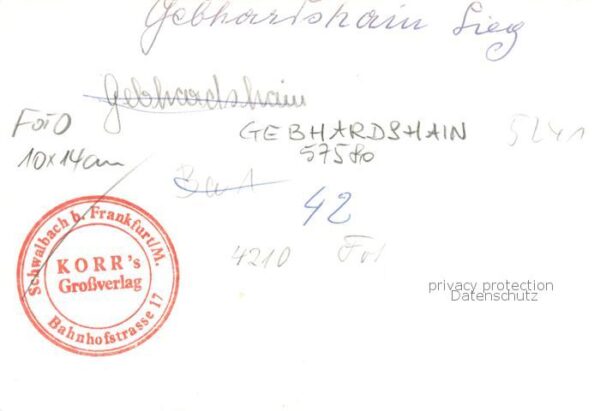 Gebhardshain Sieg
Gebhardshain
FOTO
10x14cm
GEBHARDSHAIN
57580
5241
42
4210
Schwalbach b. Frankfurt/M.
KORR's
Großverlag
Bahnhofstrasse 17
privacy protection
Datenschutz